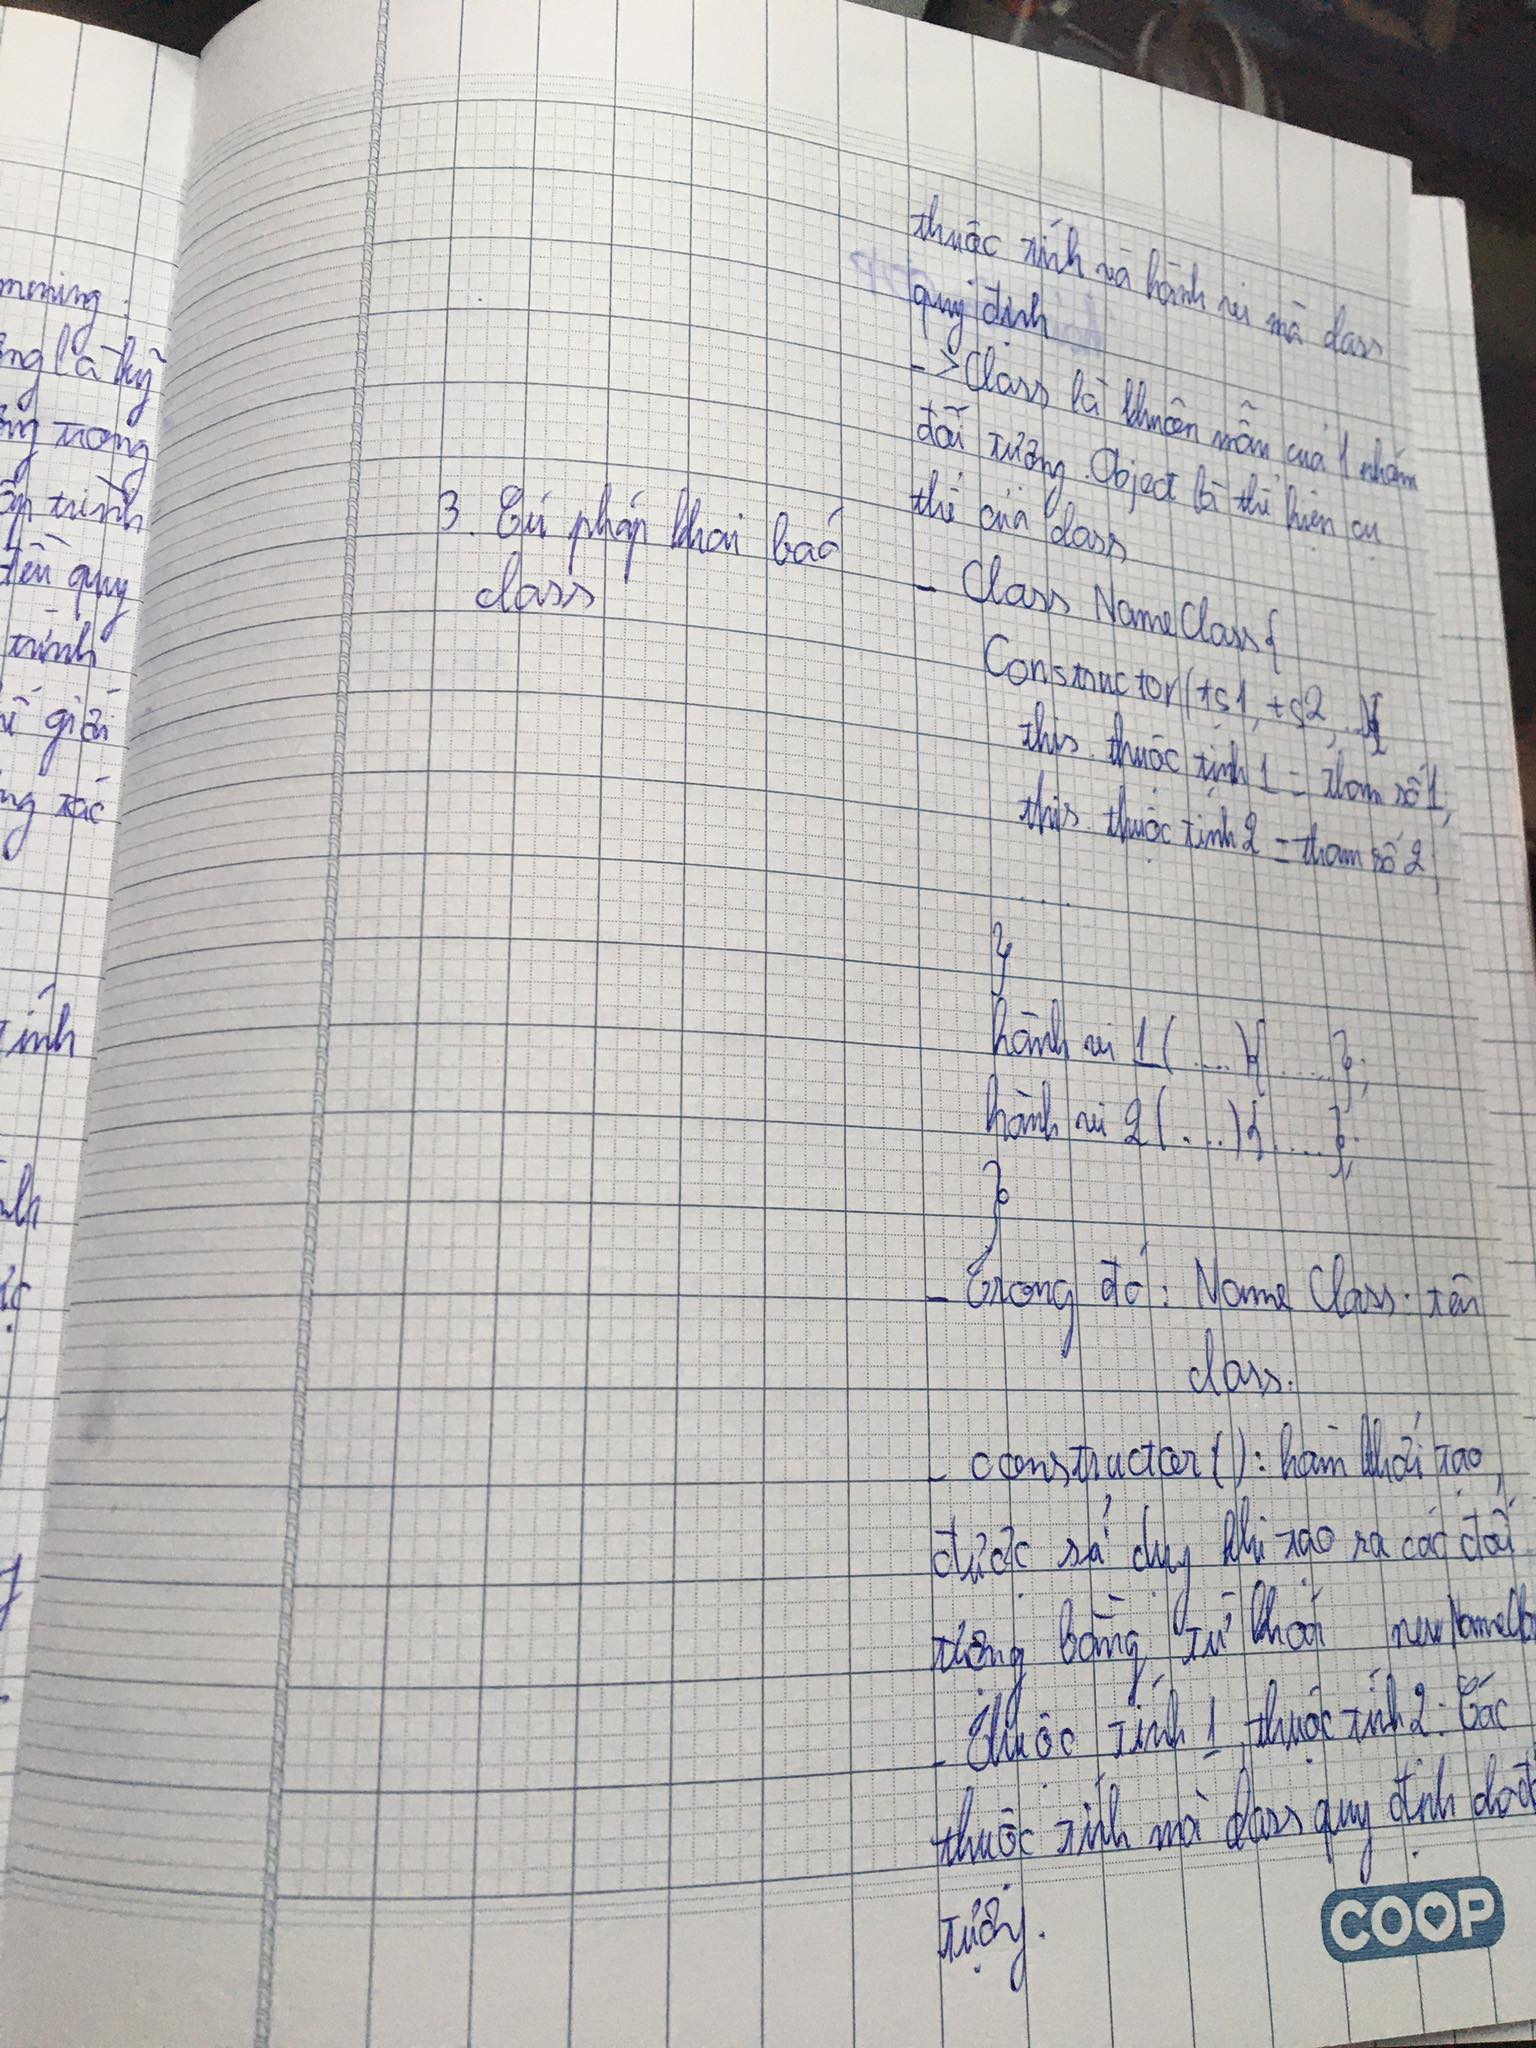 mming:
ng là kỹ
ng trong
ập trình
đều quy
trình
ng tác
tính
thuộc tính và hành vi mà class
quy định
-> Class là khuôn mẫu của 1 nhóm
đối tượng. Object là thể hiện cụ
thể của class
3. Cú pháp khai báo
class
- Class NameClass{
Constructor(ts1, ts2, ...){
this.thuộc tính 1 = tham số 1,
this.thuộc tính 2 = tham số 2,
....
}
hành vi 1(....){.....};
hành vi 2(....){.....};
}
- Trong đó: Name Class: tên
class.
- constructor(): hàm khởi tạo,
được sử dụng khi tạo ra các đối
tượng bằng từ khoá new NameCla
- Thuộc tính 1, thuộc tính 2: Các
thuộc tính mà class quy định cho đ
tượng.
COOP